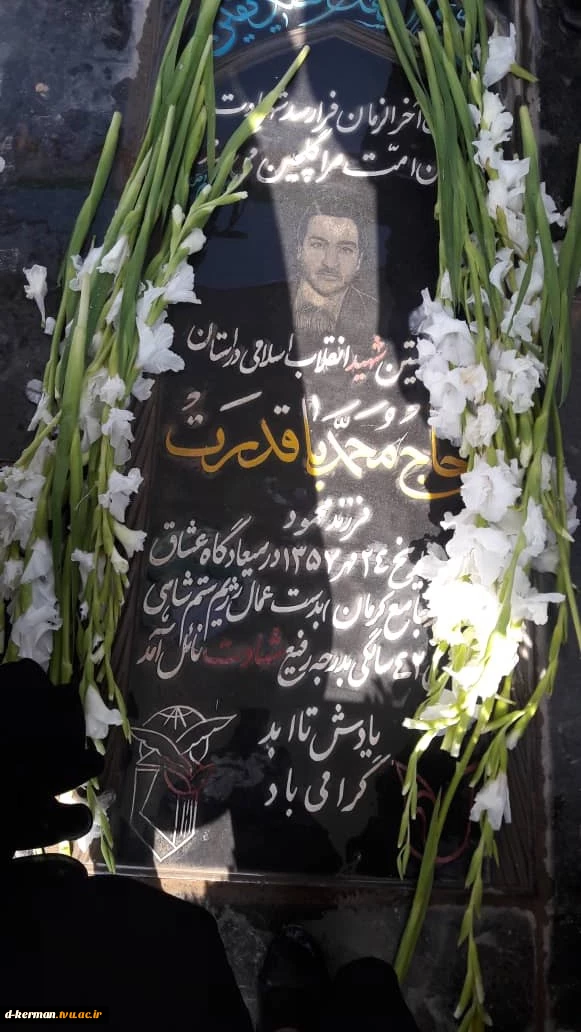 آخر از زمان فرا رسد شهادت
امّت مرا گلچین
شهید انقلاب اسلامی در استان
حاج مُحَمَّد باقدرَت
فرزند محمود
۲۴ مهر ۱۳۵۷ در میعادگاه عشاق
جامع کرمان بدست عمال رژیم ستم شاهی
۲۴ سالگی بدرجه رفیع شهادت نائل آمد
یادش تا ابد
گرامی باد
d-kerman.tvu.ac.ir